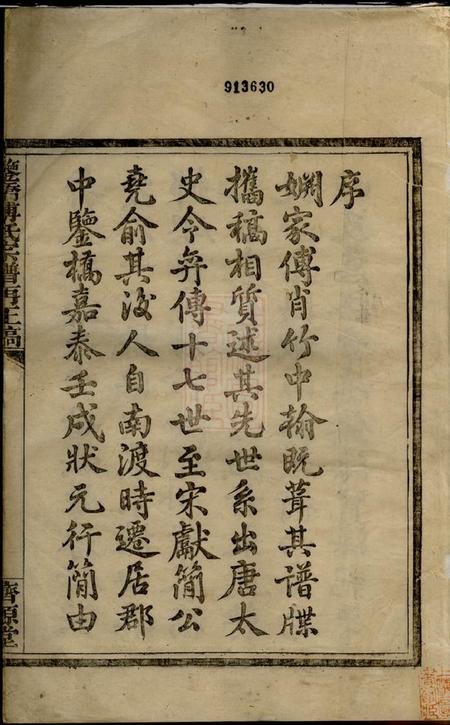 913630
序
姻家傅肖竹中翰旣葺其譜牒
攜稿相質述其先世系出唐太
史令弈傳十七世至宋獻簡公
堯俞其後人自南渡時遷居郡
中鑒橋嘉泰壬戌狀元行簡由
傅氏宗譜